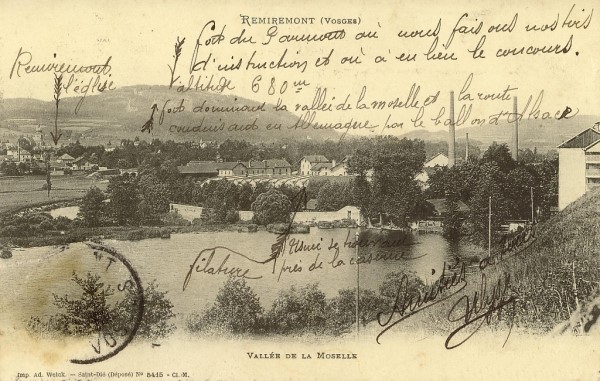 REMIREMONT (VOSGES)
Fort du Parmont où nous faisons nos tirs
d'instruction et où a eu lieu le concours.
altitude 680m
Remiremont
l'église
Fort dominant la vallée de la moselle et la route
conduisant en Allemagne par le ballon d'Alsace
Usine de
près de la caserne
filature
Amitiés
VOSGES
VALLÉE DE LA MOSELLE
Imp. Ad. Weick. — Saint-Dié (Déposé) No 5415 - Cl. M.